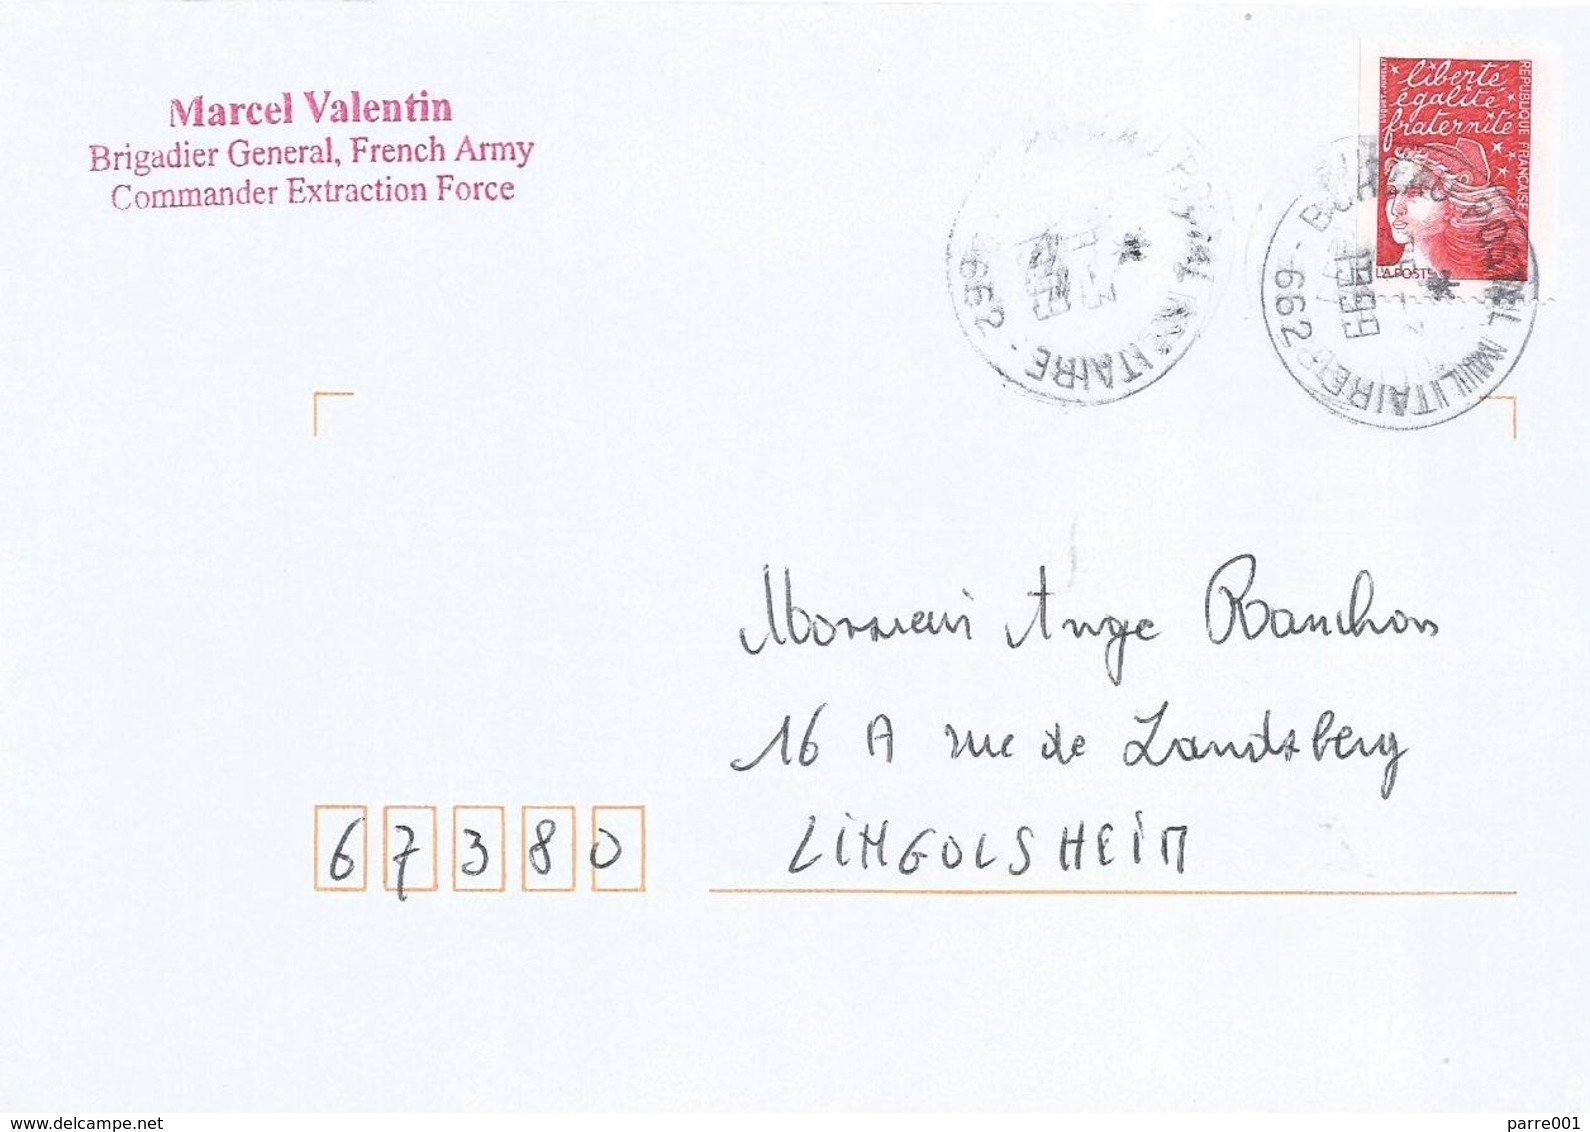 Marcel Valentin
Brigadier General, French Army
Commander Extraction Force
liberté
égalité
fraternité
REPUBLIQUE FRANÇAISE
LA POSTE
662
MILITAIRE
BUREAU POSTAL MILITAIRE
662
1999
Monsieur Ange Ranchon
16 A rue de Landsberg
67380
LINGOLSHEIM
parre001